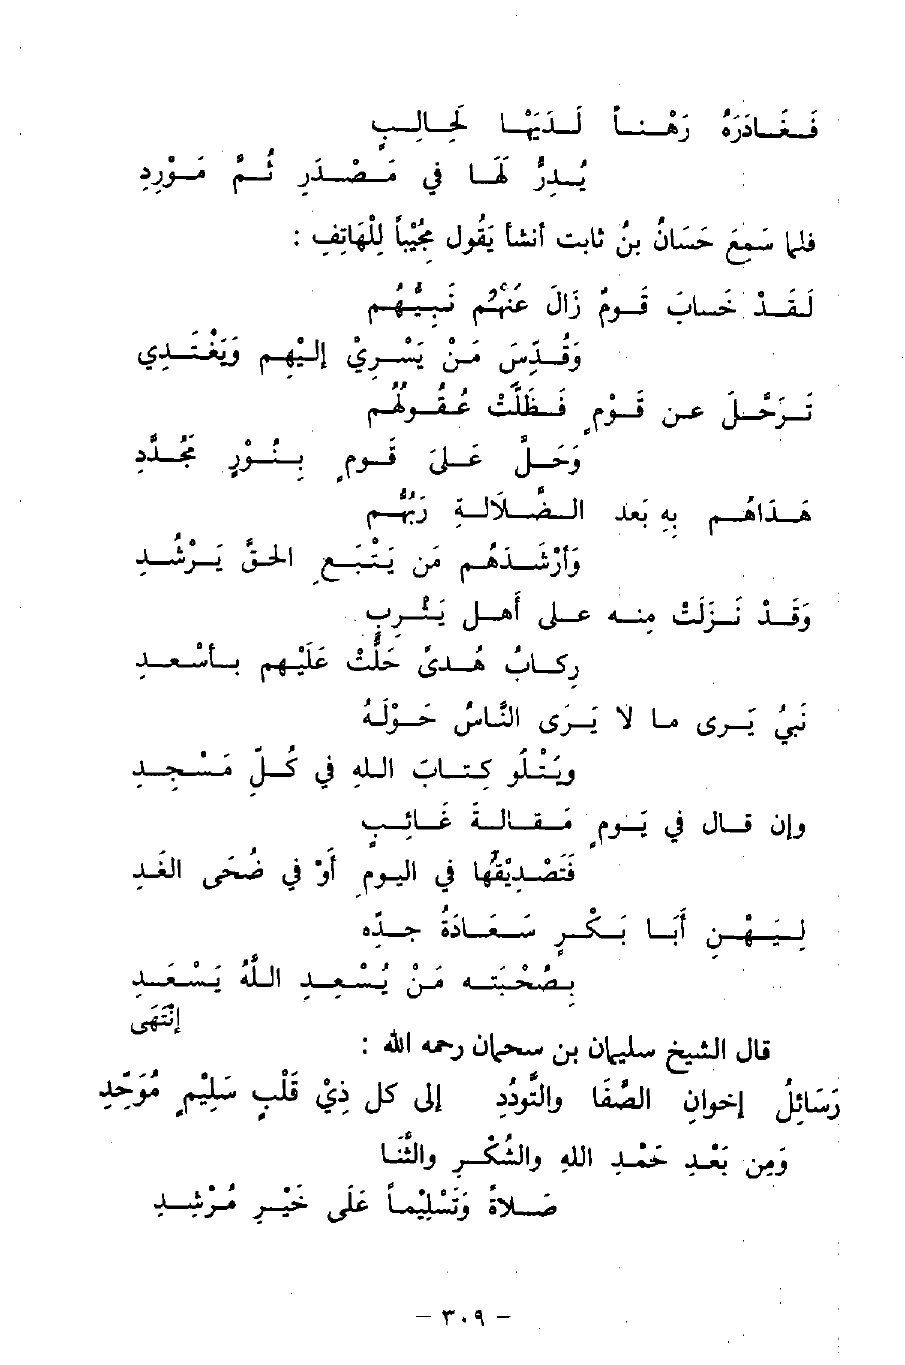 فَغَادَرَهُ رَهْناً لَدَيْهَا لَحَالِبٍ
يُدِرُّ لَهَا في مَصْدَرِ ثُمَّ مَوْرِدِ
فلما سَمِعَ حَسَانُ بنُ ثابت أنشأ يَقُول مُجِيْباً لِلْهَاتِفِ :
لَقَدْ خَابَ قَومُ زَالَ عَنْهُم نَبِيُّهُم
وَقُدِّسَ مَنْ يَسْرِيْ إليْهِم وَيَغْتَدِي
تَرَحَّلَ عن قَوْمٍ فَظَلَّتْ عُقُولُهُم
وَحَلَّ عَلىَ قَومٍ بِنُوْرٍ مُجَدَّدِ
هَدَاهُم بِهِ بَعد الضَّلَالةِ رَبُّهُم
وَأرْشَدَهُم مَن يَتْبَعِ الحقَّ يَرْشُدِ
وَقَدْ نَزَلَتْ مِنه على أَهل يَثْربِ
رِكابُ هُدىً حَلَّتْ عَلَيْهِم بأسْعدِ
نَبيُ يَرى ما لا يَرَى النَّاسُ حَوْلَهُ
ويَتْلُو كِتابَ اللهِ في كُلِّ مَسْجِدِ
وإن قال في يَومٍ مَقالةَ غَائِبٍ
فَتَصْدِيْقُها في اليومِ أَوْ في ضُحَى الغَدِ
لِيَهْنِ أَبَا بَكْرٍ سَعَادَةُ جدّه
بِصُحْبَتِه مَنْ يُسْعِدِ اللهُ يَسْعَدِ
إنْتَهَى
قال الشيخ سليمان بن سحمان رحمه الله :
رَسَائِلُ إخوانِ الصَّفَا والتَّودُدِ إلى كل ذِيْ قَلْبٍ سَلِيْمٍ مُوَحِّدِ
وَمِن بَعْدِ حَمْدِ اللهِ والشُكْرِ والثَّنَا
صَلاةً وَتَسْلِيْماً عَلَى خَيْرِ مُرْشِدِ
– ٣٠٩ –